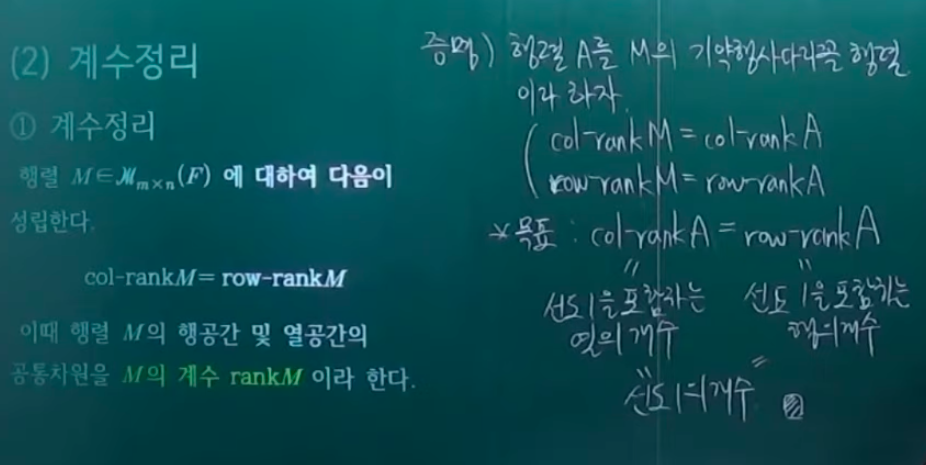 (2) 계수정리
① 계수정리
행렬 M∈𝓜m×n(F) 에 대하여 다음이
성립한다.
col-rankM = row-rankM
이때 행렬 M의 행공간 및 열공간의
공통차원을 M의 계수 rankM 이라 한다.
증명) 행렬 A를 M의 기약행사다리꼴 행렬
이라 하자.
col-rank M = col-rank A
row-rank M = row-rank A
* 목표 : col-rank A = row-rank A
선도 1을 포함하는 선도 1을 포함하는
열의 개수 행의 개수
선도 1의 개수